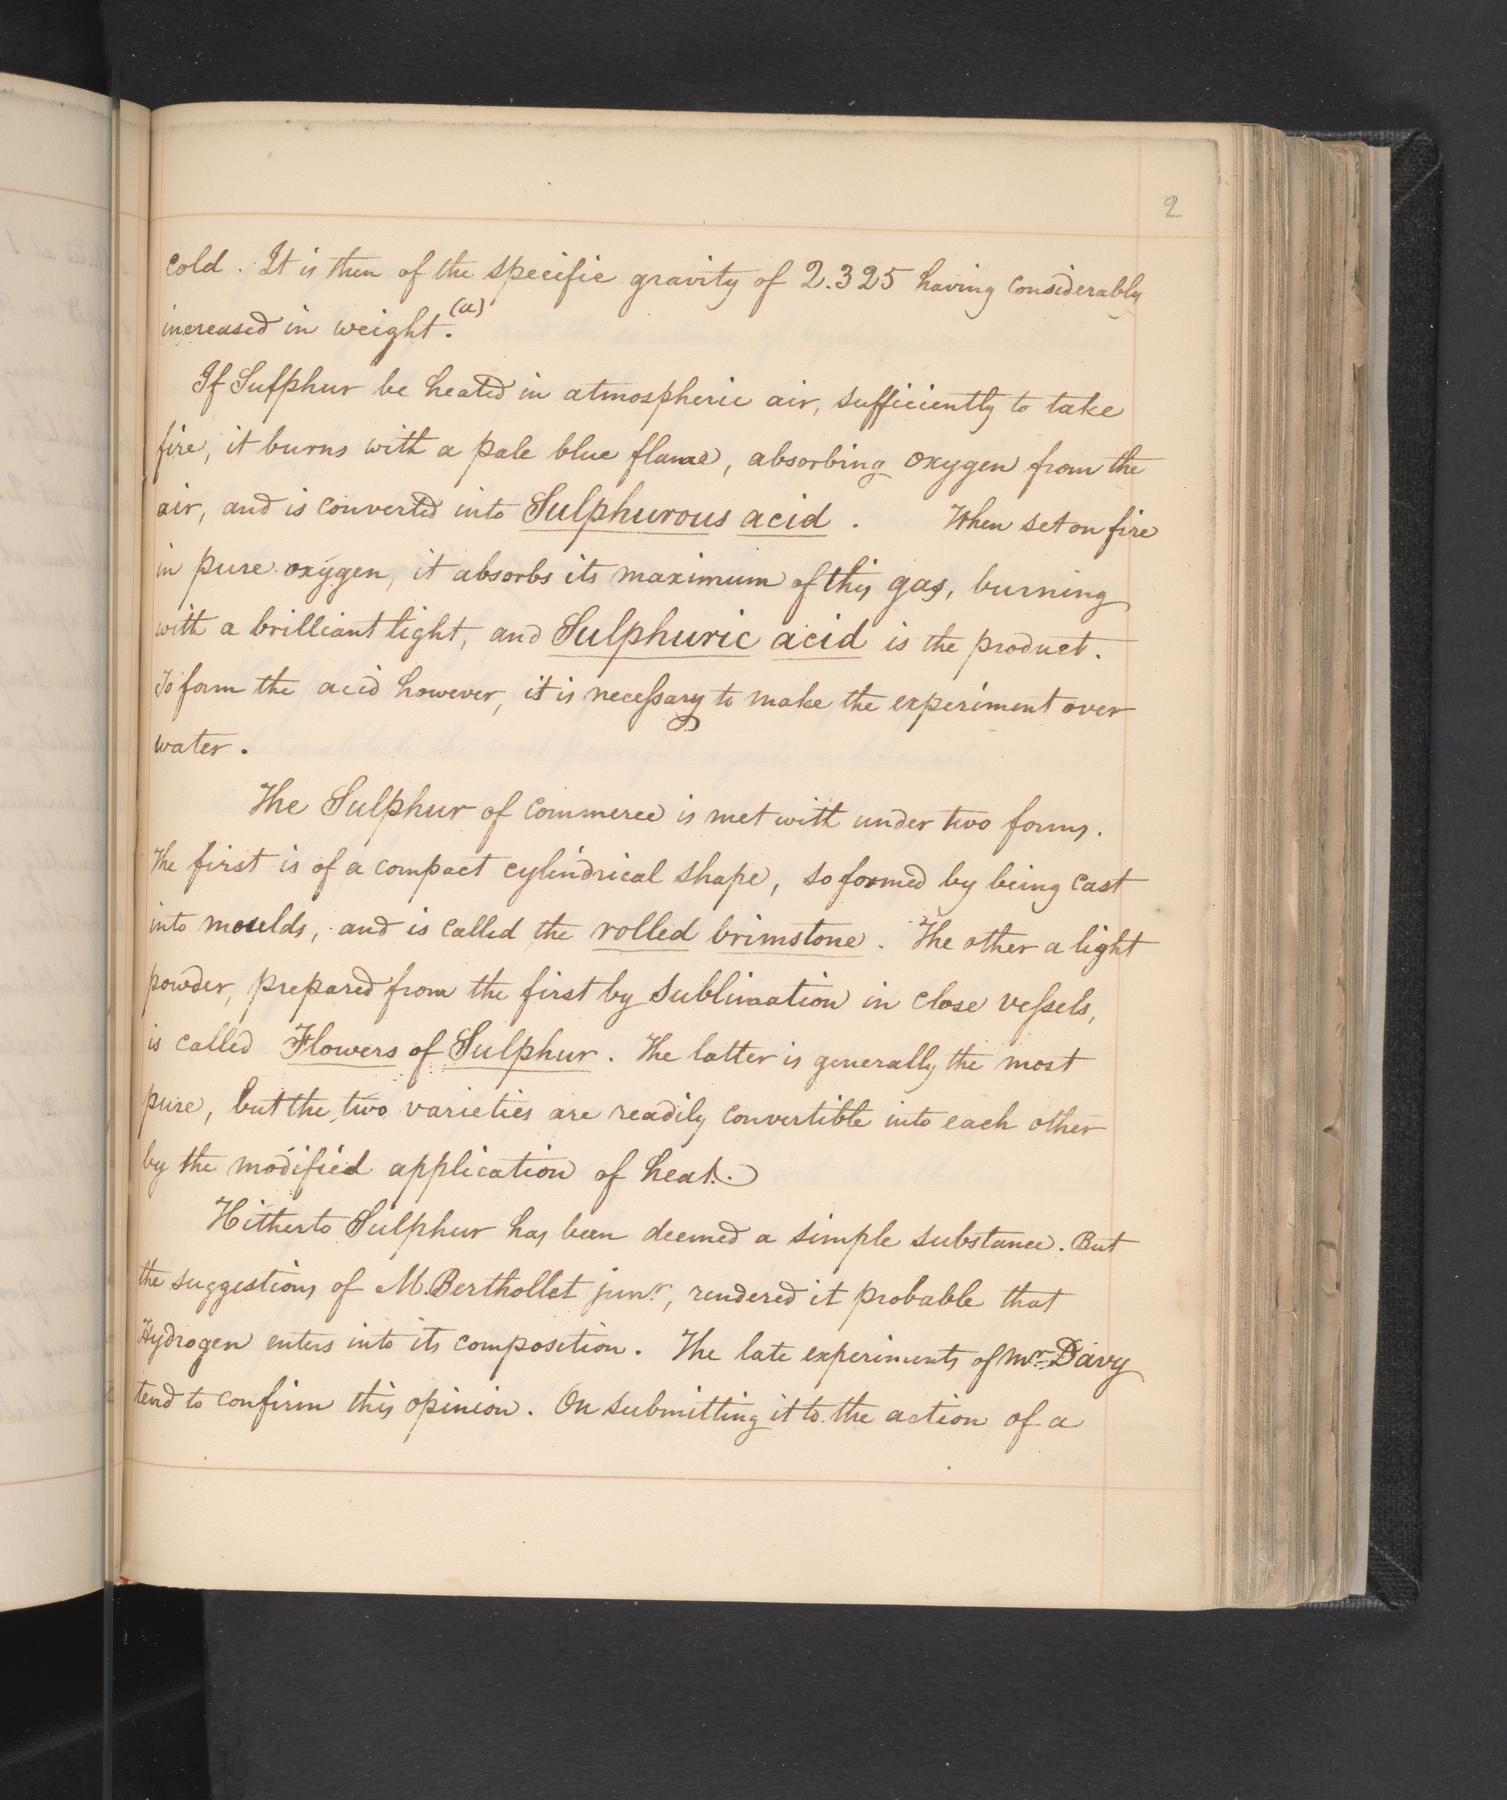 2
cold. It is then of the specific gravity of 2.325 having considerably
increased in weight.(a)
If Sulphur be heated in atmospheric air, sufficiently to take
fire, it burns with a pale blue flame, absorbing oxygen from the
air, and is converted into Sulphurous acid. When set on fire
in pure oxygen, it absorbs its maximum of this gas, burning
with a brilliant light, and Sulphuric acid is the product.
To form the acid however, it is necessary to make the experiment over
water.
The Sulphur of commerce is met with under two forms.
The first is of a compact cylindrical shape, so formed by being cast
into moulds, and is called the rolled brimstone. The other a light
powder, prepared from the first by sublimation in close vessels,
is called Flowers of Sulphur. The latter is generally the most
pure, but the two varieties are readily convertible into each other
by the modified application of heat.
Hitherto Sulphur has been deemed a simple substance. But
the suggestions of M. Berthollet junr, rendered it probable that
Hydrogen enters into its composition. The late experiments of Mr. Davy
tend to confirm this opinion. On submitting it to the action of a